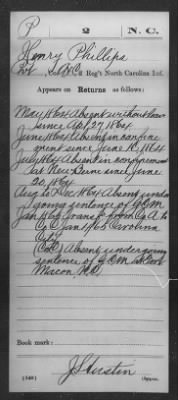 P 2 N.C.
Henry Phillips
Pvt, Co. A, 2 Reg't North Carolina Inf.
Appears on Returns as follows:
May 1864 Absent without leave
since Apl 27 1864.
June 1864 Absent in confine
ment since June 10, 1864
July 1864 Absent in confinement
at New Berne since June
20, 1864
Aug to Dec 1864 Absent under
going sentence of G.C.M.
Jan 1865 Transf. from Co A to
Co C Jan 1/65 Carolina
City
(Co C) Absent undergoing
sentence of G.C.M. at Fort
Macon, N.C.
Book mark:
(546) Copyist.